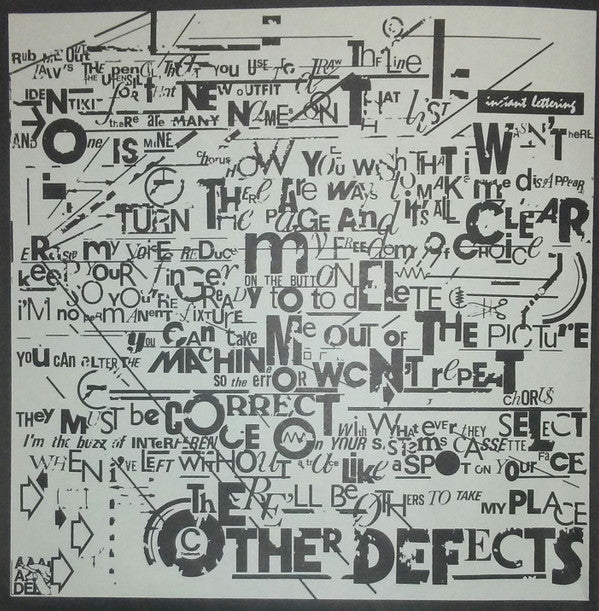 Rub me Out
THE UTENSIL
JAW'S THE pencil THAT YOU USE TO DRAW The Line
IDENTIKIT for that NEW OUTFIT
instant lettering
there are MANY NAMES ON THAT LIST
AND One IS MINE
WASN'T theRE
chorus
HOW YOU wish THAT i
THERE Are WAYS to MAKE me disappear
TURN The PAGE And It's ALL CLEAR
ERase my VOICE REDUCE MY FREEdom Of CHOICE
keep YOUR finger ON THE BUTTON
SO YOU'RE READY to to dELeTE
i'M no permanent fixture
you CAN take Me OUT OF THE PICTURE
you CAn alTER THE MACHINE
SO the error OR WON'T rEPEAT
chORUS
THey MUST be CORRECT With WHatever THEY SELECT
I'm the buzz of INTERFERENCE On YOUR SYSTEMS CASSETTE
WHEN i'VE LEFT WITHOUT a like a SPOT ON YOUR FACE
THERE'LL BE OTHERS TO TAKE MY PLACE
C
OTHER DEFECTS